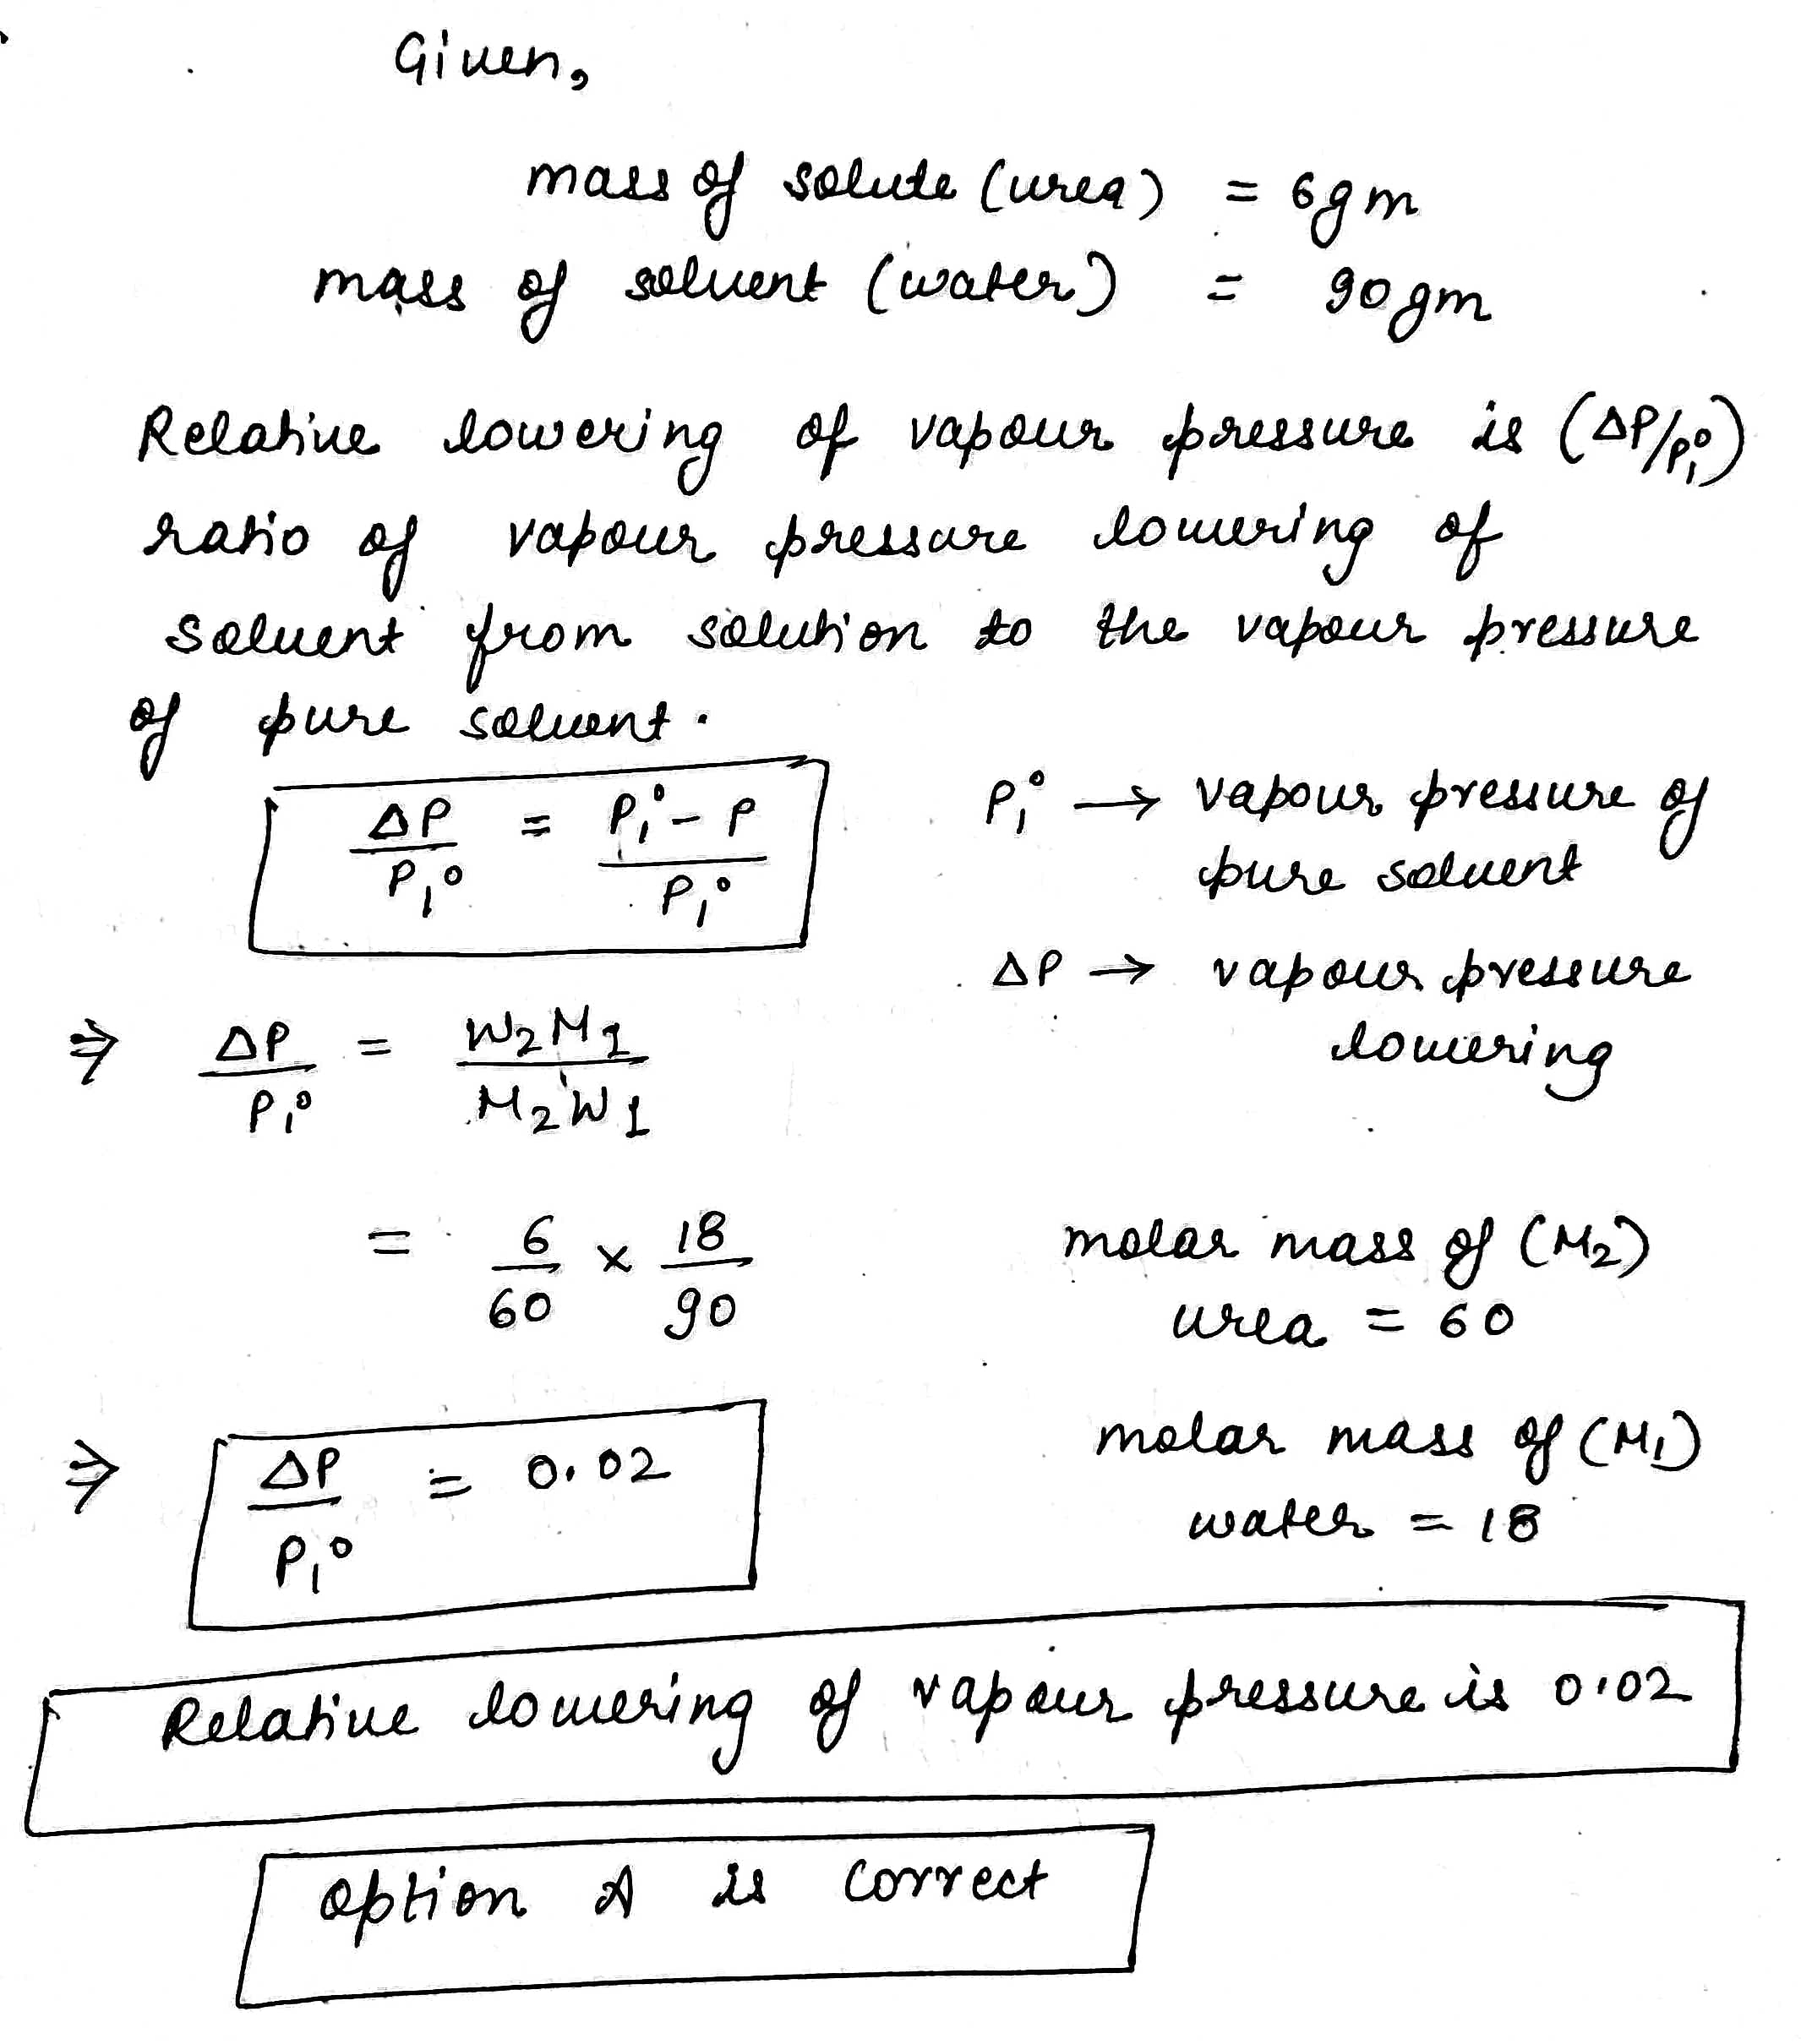 Given,
mass of solute (urea) = 6gm
mass of solvent (water) = 90gm
Relative lowering of vapour pressure is (ΔP/P₁⁰)
ratio of vapour pressure lowering of
solvent from solution to the vapour pressure
of pure solvent.
ΔP/P₁⁰ = P₁⁰-P/P₁⁰
P₁⁰ → vapour pressure of
pure solvent
ΔP → vapour pressure
lowering
⇒ ΔP/P₁⁰ = W₂M₁/M₂W₁
= 6/60 × 18/90
molar mass of (M₂)
urea = 60
⇒ ΔP/P₁⁰ = 0.02
molar mass of (M₁)
water = 18
Relative lowering of vapour pressure is 0.02
option A is correct